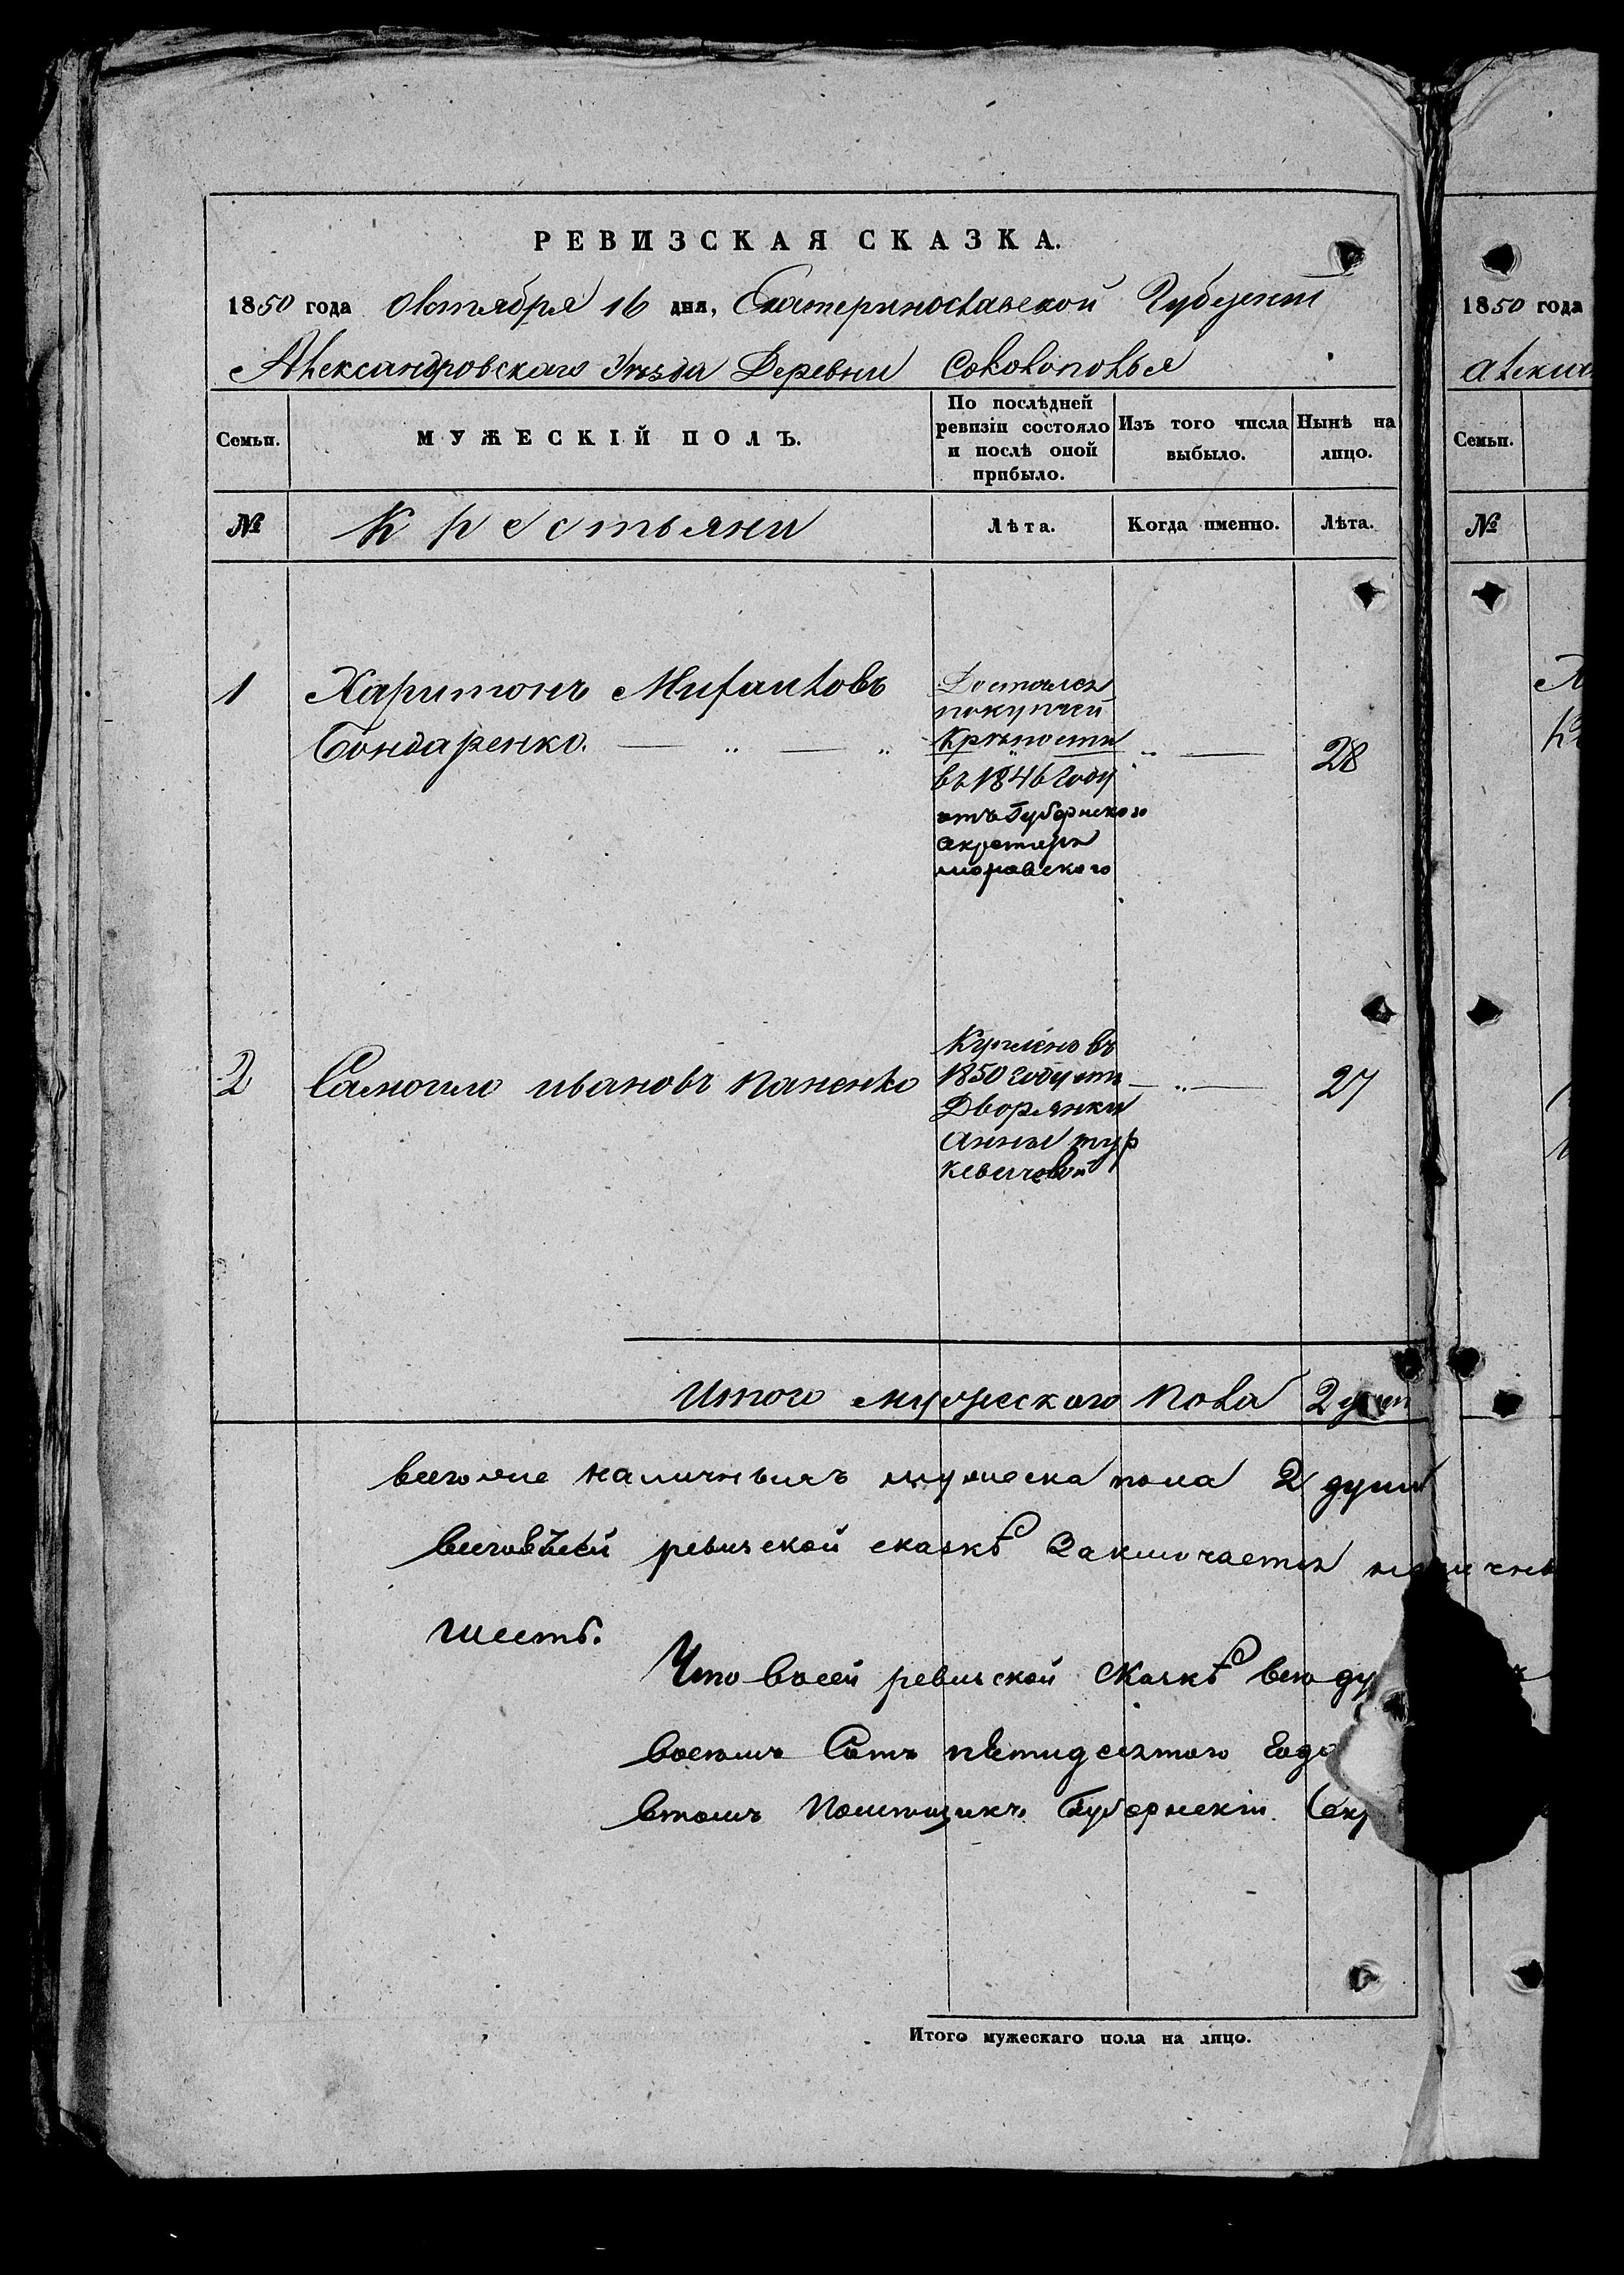 РЕВИЗСКАЯ СКАЗКА.
1850 года Октября 16 дня, Екатеринославской Губернии
Александровскаго Уезда Деревни Соколополья
Семьи.
МУЖЕСКІЙ ПОЛЪ.
По послѣдней ревизіи состояло и послѣ оной прибыло.
Изъ того числа выбыло.
Нынѣ на лицо.
№
Крестьяни
Лѣта.
Когда именно.
Лѣта.
1 Харитонъ Михайловъ
Бондаренко.
Достался
покупчей
Крѣпости
въ 1846 году
отъ Губернского
Секретаря
28
2 Самойло ивановъ паненко
Куплено въ
1850 году отъ
Дворянки
анны тур
кевичевой
27
Итого мужеского пола 2
всего же наличныхъ мужеска пола 2 души
ревизской сказкѣ Заключается
шесть.
Что в сей ревизской Сказкѣ всю
восемь Сотъ пятидесятого года
втомъ Помещикъ Губернскій
Итого мужескаго пола на лицо.
1850 года
Семьи.
№